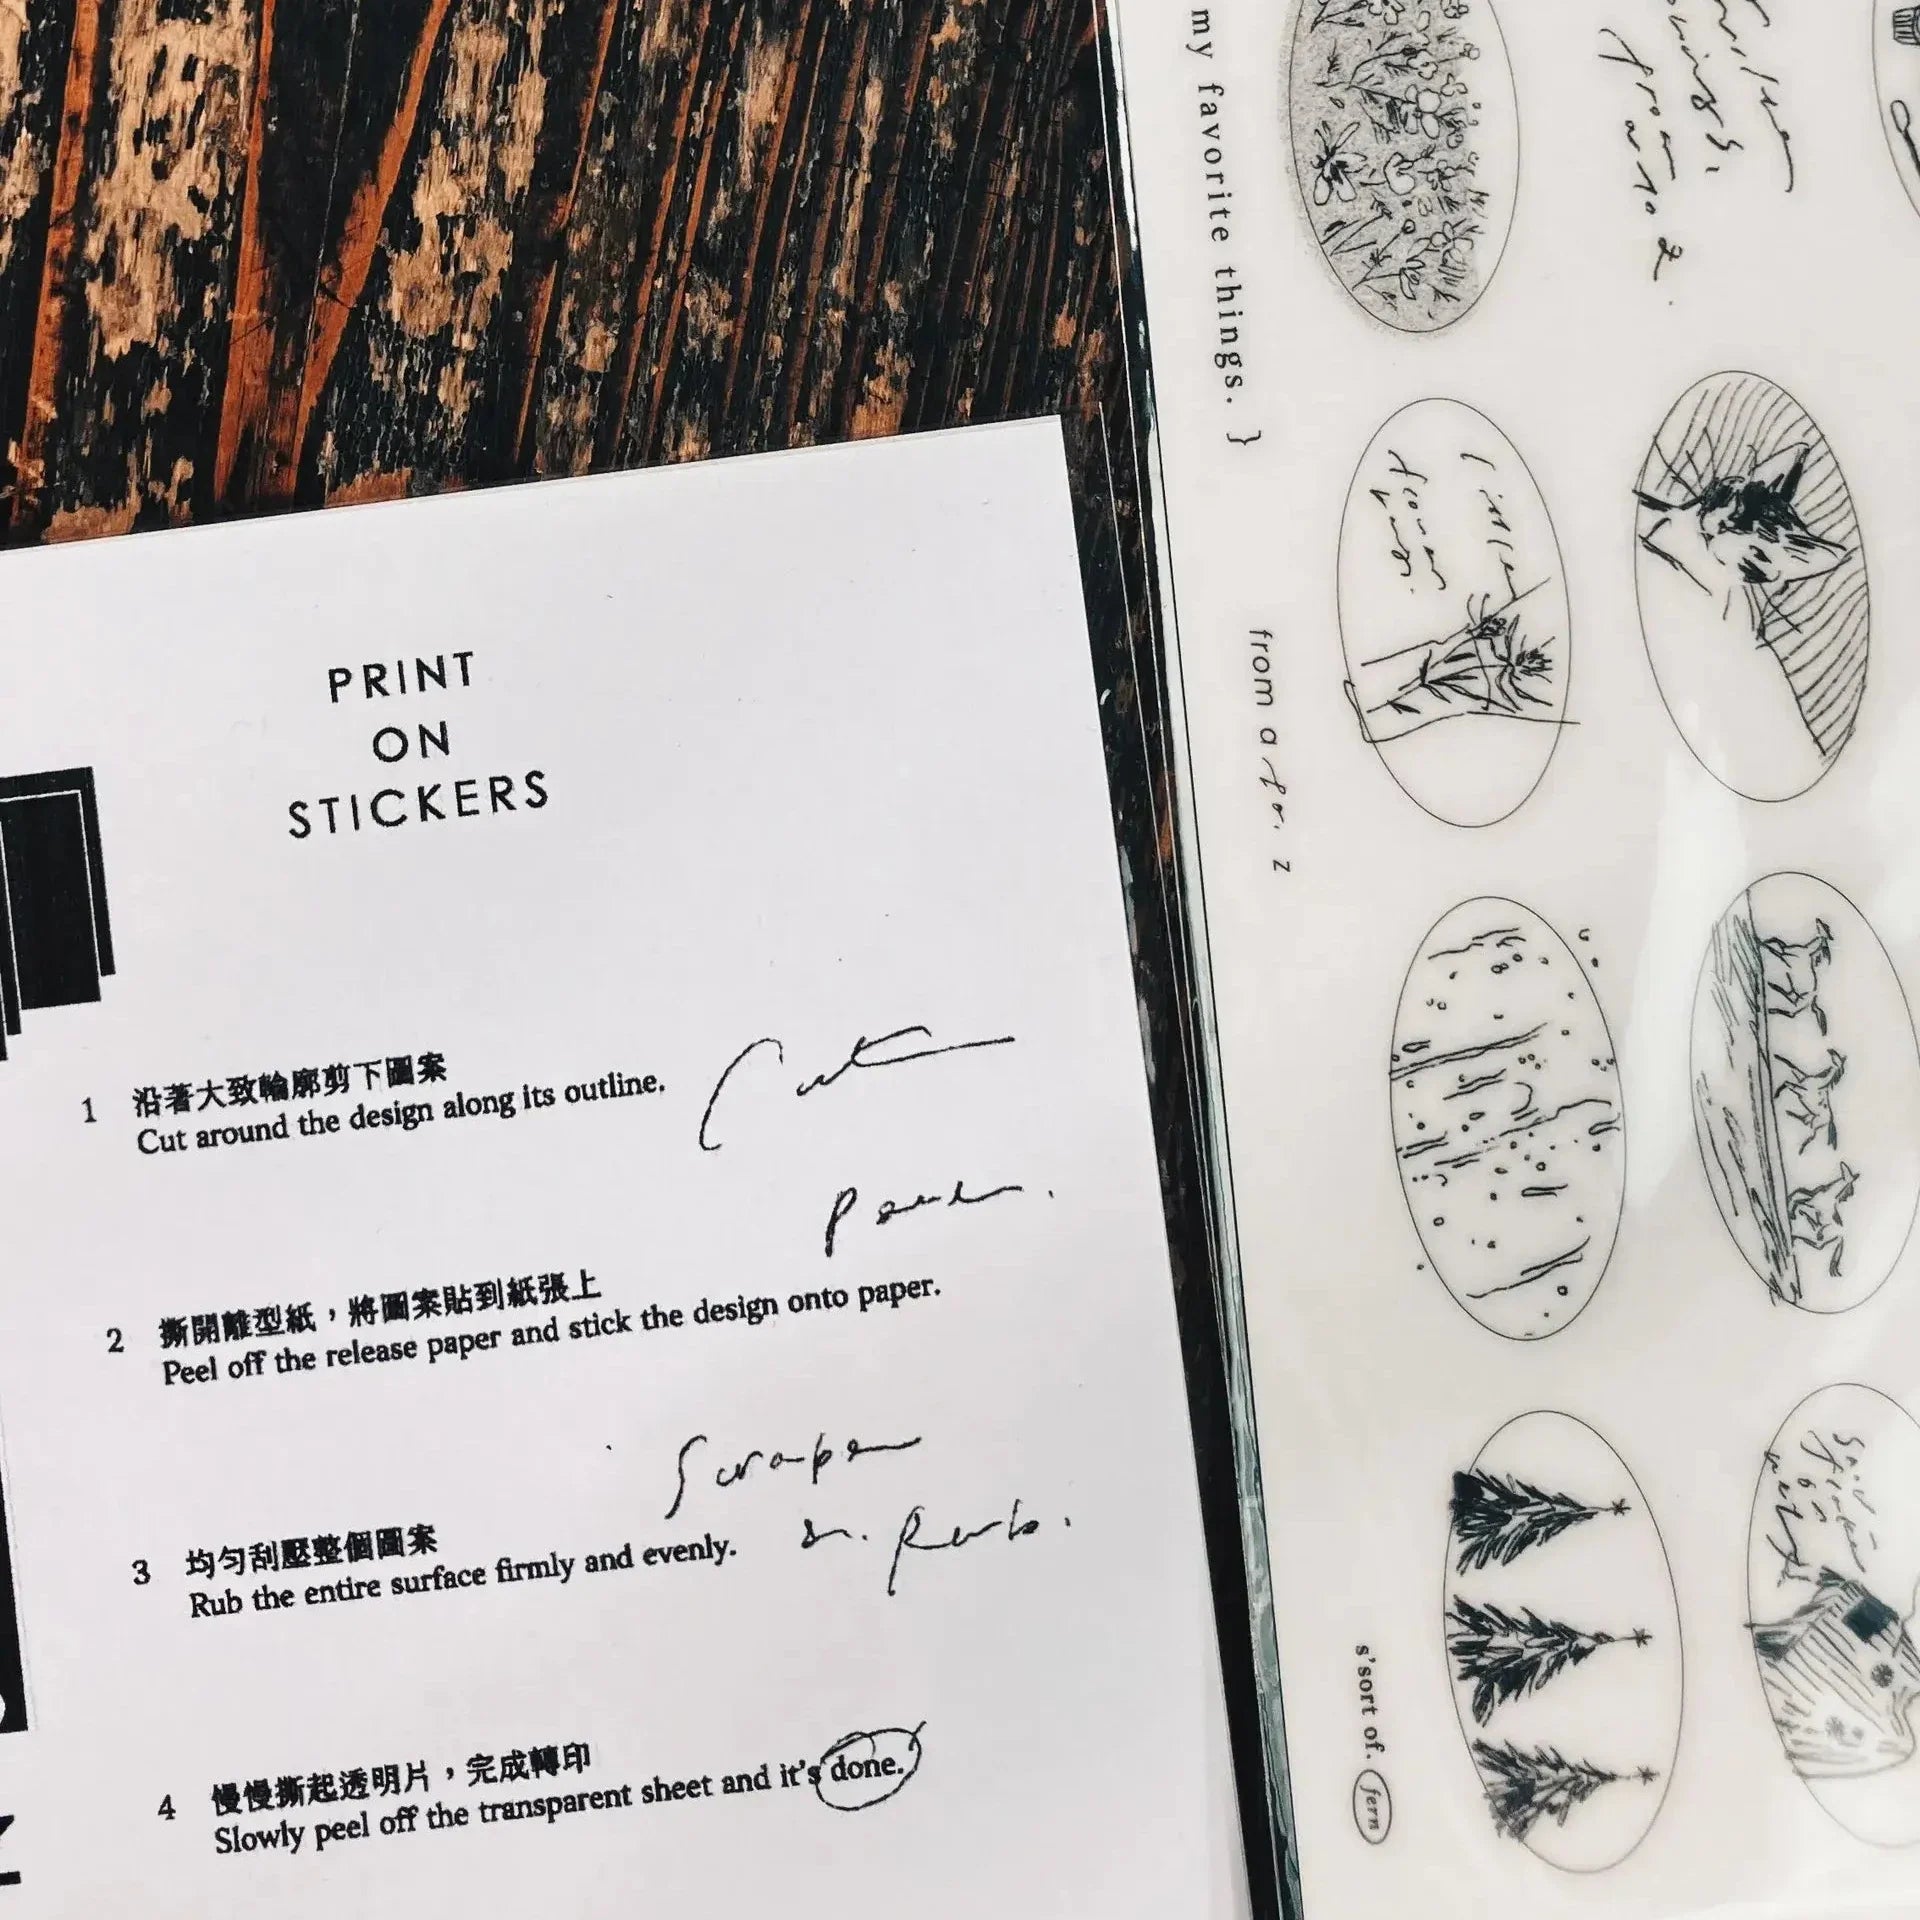 PRINT
ON
STICKERS
1 沿著大致輪廓剪下圖案
Cut around the design along its outline.
Cut
2 撕開離型紙，將圖案貼到紙張上
Peel off the release paper and stick the design onto paper.
3 均勻刮壓整個圖案
Rub the entire surface firmly and evenly.
or. Rub.
4 慢慢撕起透明片，完成轉印
Slowly peel off the transparent sheet and it's done.
my favorite things. }
from a for. z
s'sort of. fern
from
a to z.
flower